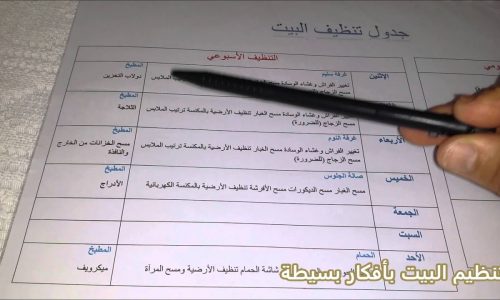 جدول تنظيف البيت
التنظيف الأسبوعي
الاثنين
غرفة سليم
تغيير الفراش وغشاء الوسادة مسح الغبار تنظيف الأرضية
الملابس
مسح الزجاج
المطبخ
دولاب التخزين
تغيير الفراش وغشاء الوسادة مسح الغبار تنظيف الأرضية بالمكنسة ترتيب الملابس
مسح الزجاج (للضرورة)
المطبخ
الثلاجة
الأربعاء
غرفة النوم
تغيير الفراش وغشاء الوسادة مسح الغبار تنظيف الأرضية بالمكنسة ترتيب الملابس
مسح الزجاج (للضرورة)
المطبخ
مسح الخزانات من الخارج
والنافذة
الخميس
صالة الجلوس
مسح الغبار مسح الديكورات مسح الأفرشة تنظيف الأرضية بالمكنسة الكهربائية
المطبخ
الأدراج
الجمعة
السبت
الأحد
الحمام
شاشة الحمام تنظيف الأرضية ومسح المرأة
المطبخ
ميكرويف
تنظيم البيت بأفكار بسيطة